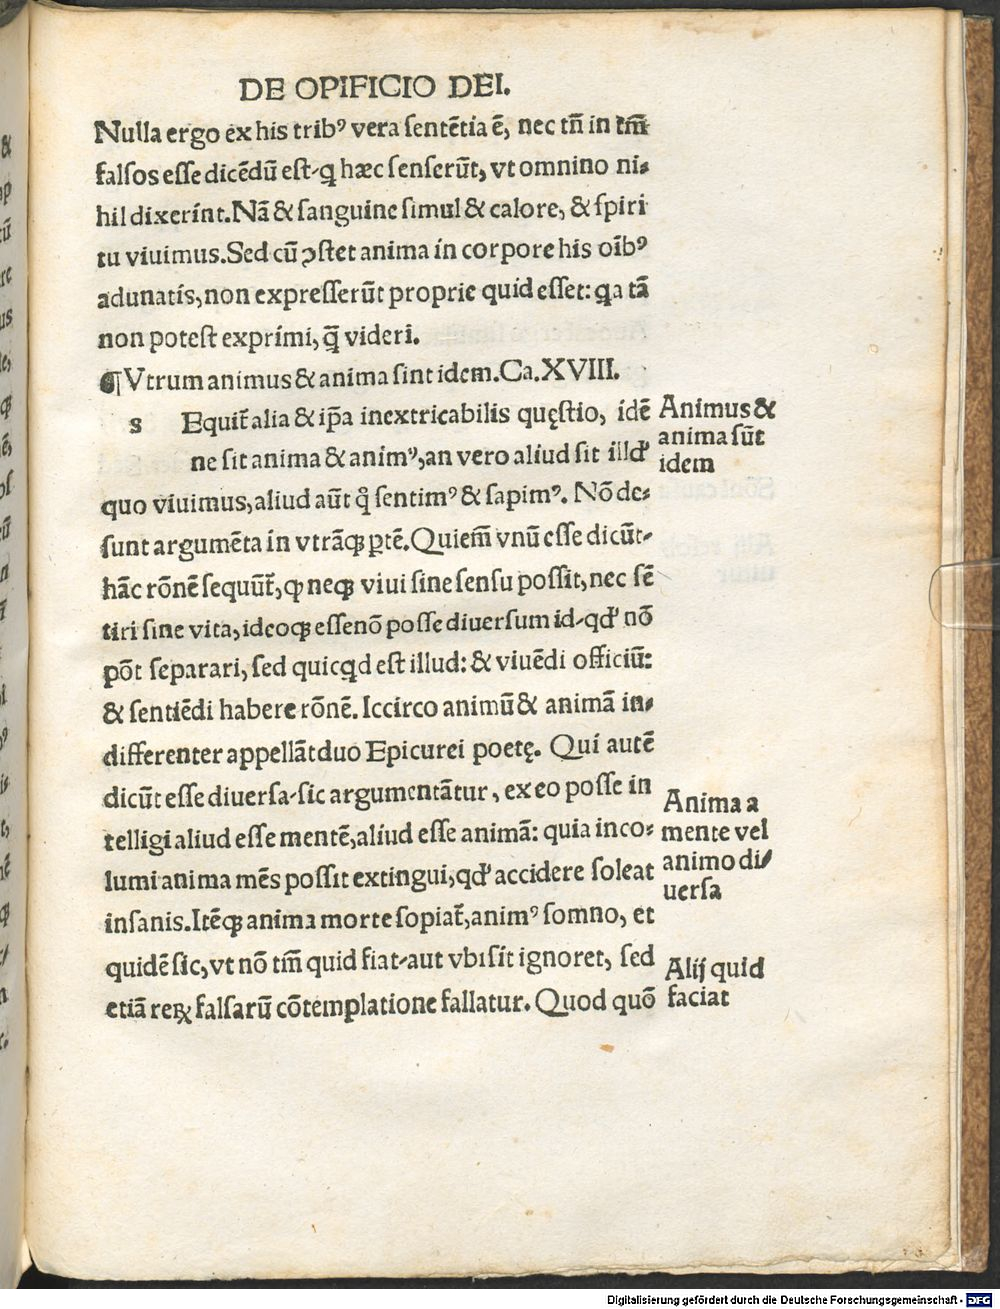 DE OPIFICIO DEI.
Nulla ergo ex his tribꝰ vera ſentētia ē, nec tn̄ in tm̄
falſos eſſe dicēdū eſt-ꝗ hæc ſenſerūt, vt omnino ni-
hil dixerint. Nā & ſanguine ſimul & calore, & ſpiri
tu viuimus. Sed cū ↄſtet anima in corpore his oībꝰ
adunatis, non expreſſerūt proprie quid eſſet: ꝗa tā
non poteſt exprimi, ꝗ̄ videri.
¶ Vtrum animus & anima ſint idem. Ca. XVIII.
s Equit̄ alia & ip̄a inextricabilis quęſtio, idē
ne ſit anima & animꝰ, an vero aliud ſit illd'
quo viuimus, aliud aūt q̊ ſentimꝰ & ſapimꝰ. Nō de-
ſunt argumēta in vtrāꝗ ꝑtē. Qui em̄ vnū eſſe dicūt-
hāc rōnē ſequūt̄, ꝙ neꝗ viui ſine ſenſu poſſit, nec ſē
tiri ſine vita, ideoꝗ eſſe nō poſſe diuerſum id-qd' nō
pōt ſeparari, ſed quicꝗd eſt illud: & viuēdi officiū:
& ſentiēdi habere rōnē. Iccirco animū & animā in-
differenter appellāt duo Epicurei poetę. Qui autē
dicūt eſſe diuerſa-ſic argumentātur, ex eo poſſe in
telligi aliud eſſe mentē, aliud eſſe animā: quia inco-
lumi anima mēs poſſit extingui, qd' accidere ſoleat
inſanis. Itēꝗ anima morte ſopiat̄, animꝰ ſomno, et
quidē ſic, vt nō tm̄ quid fiat-aut vbi ſit ignoret, ſed
etiā reꝝ falſarū cōtemplatione fallatur. Quod quō
Animus &
anima ſūt
idem
Anima a
mente vel
animo di-
uerſa
Alij quid
faciat
Digitalisierung gefördert durch die Deutsche Forschungsgemeinschaft - DFG